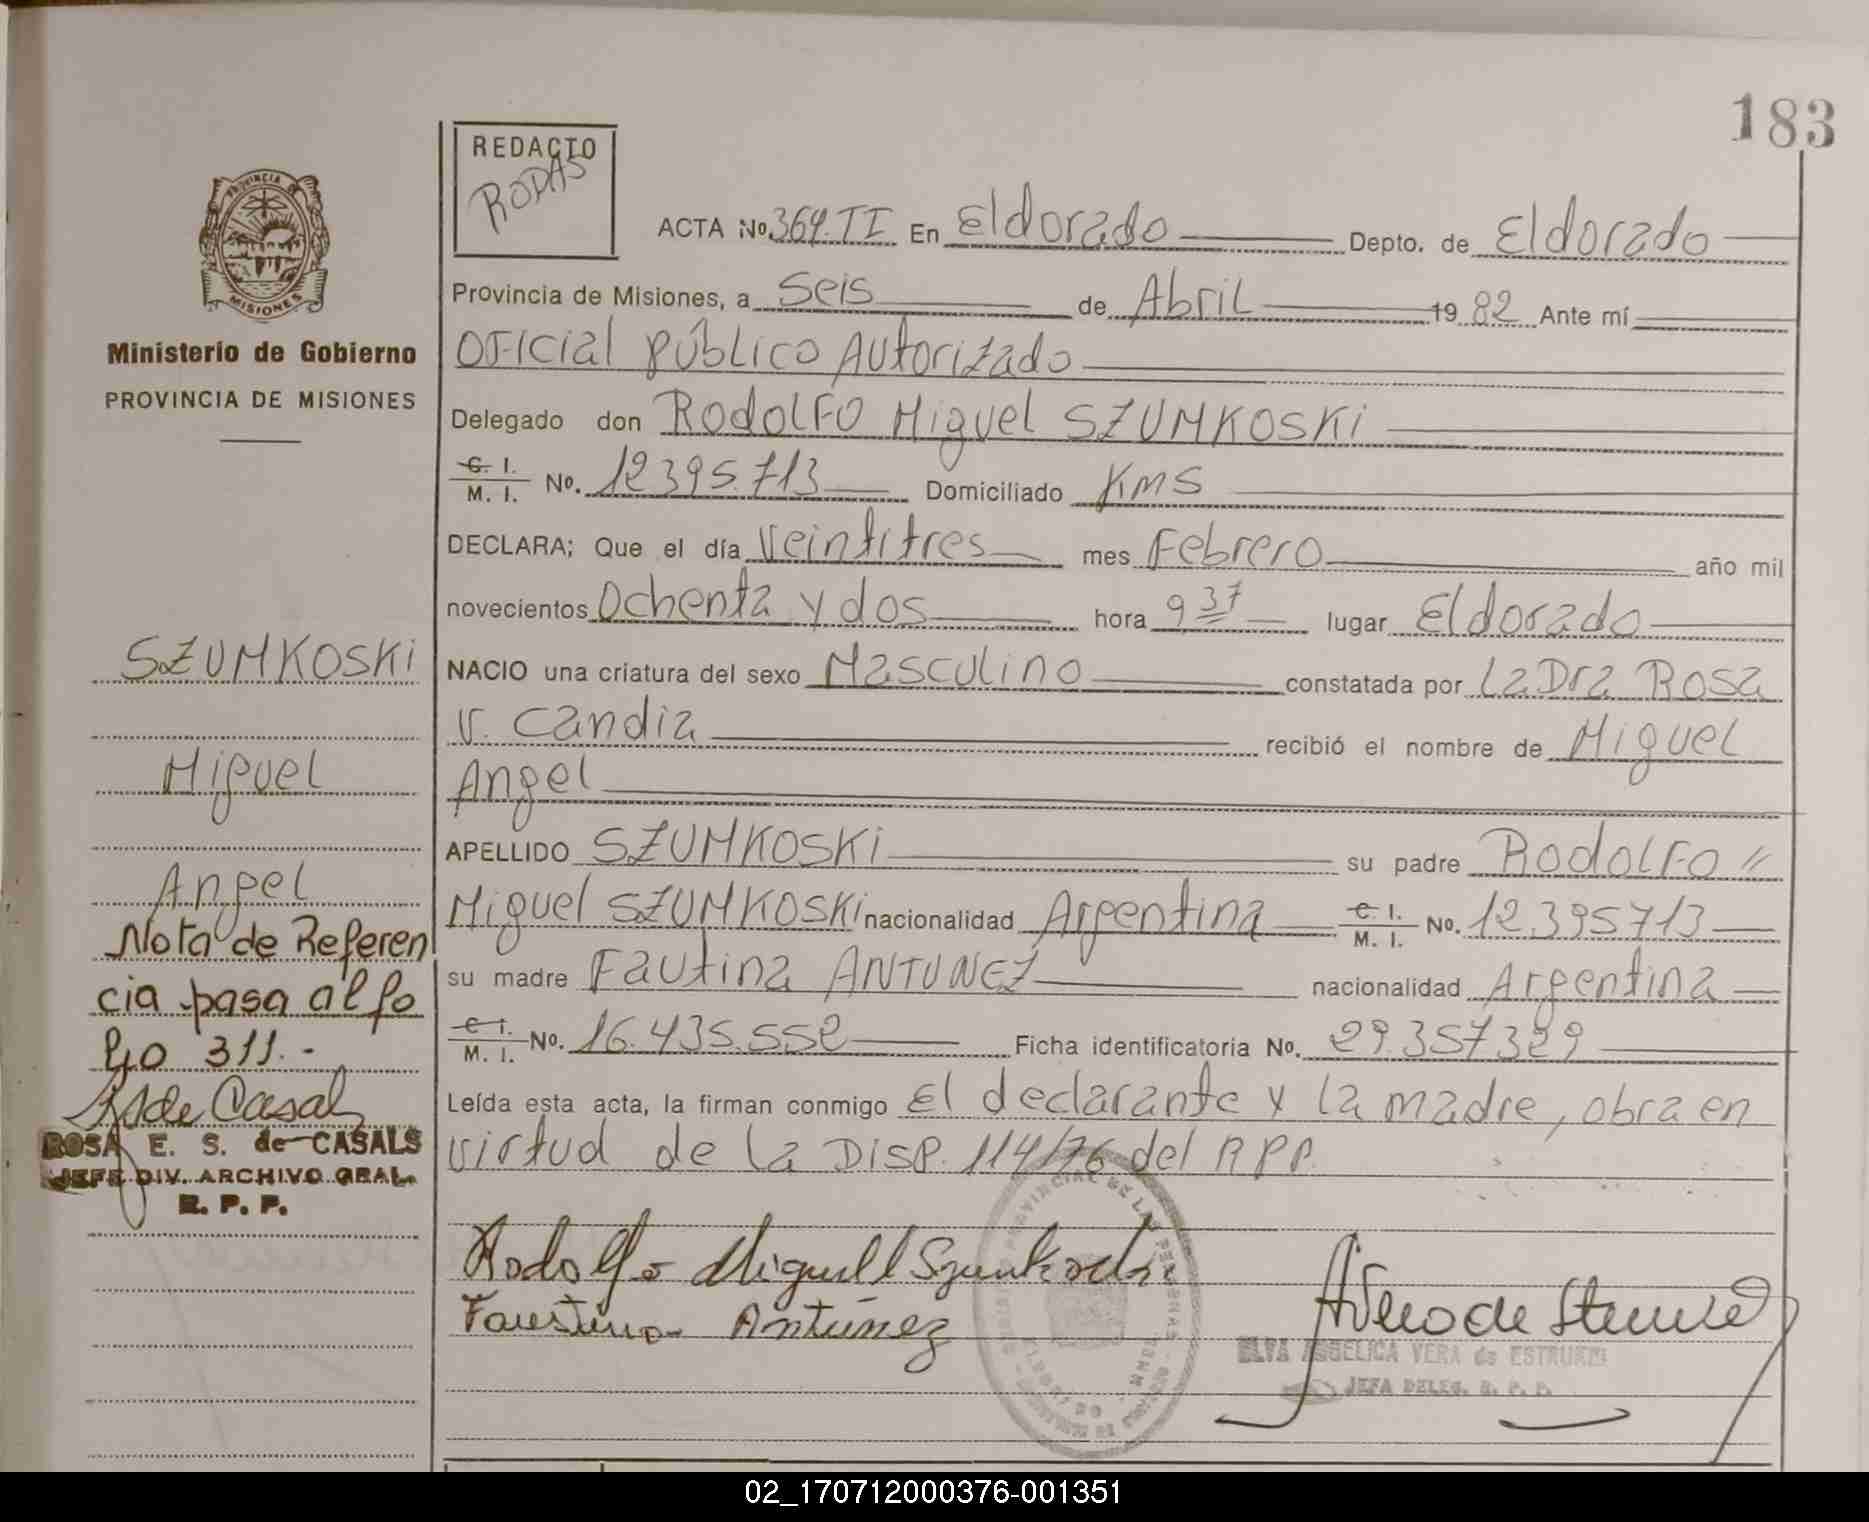 183
REDACTO
RODAS
PROVINCIA DE
MISIONES
Ministerio de Gobierno
PROVINCIA DE MISIONES
ACTA No. 364. TI En Eldorado Depto. de Eldorado
Provincia de Misiones, a Seis de Abril 1982 Ante mí
Oficial Público Autorizado
Delegado don Rodolfo Miguel SZUMKOSKi
C. I.
M. I. No. 12.395.713 Domiciliado KM5
DECLARA; Que el día Veintitres mes Febrero año mil
novecientos Ochenta y dos hora 9 37 lugar Eldorado
NACIO una criatura del sexo Masculino constatada por La Dra Rosa
V. Candia recibió el nombre de Miguel
Angel
APELLIDO SZUMKOSKi su padre Rodolfo
Miguel SZUMKOSKi nacionalidad Argentina C. I. M. I. No. 12.395713
su madre Fautina ANTUNEZ nacionalidad Argentina
C. I.
M. I. No. 16.435.552 Ficha identificatoria No. 29.357329
Leída esta acta, la firman conmigo El declarante y la madre, obra en
virtud de la Disp. 114/76 del RPP.
SZUMKOSKi
Miguel
Angel
Nota de Referen
cia pasa al fo
lio 311.-
ROSA E. S. de CASALS
JEFE DIV. ARCHIVO GRAL.
R. P. P.
Rodolfo Miguel Szumkoski
Faustina Antúnez
PROVINCIAL DE LAS PERSONAS
ELVA ANGELICA VERA de
JEFA DELEG. R. P. P.
02_170712000376-001351